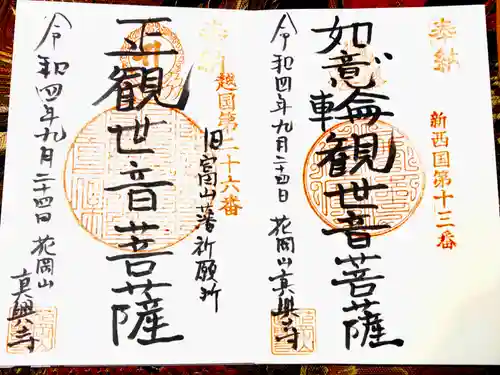 奉納
新西国第十三番
如意輪観世音菩薩
令和四年九月二十四日 花岡山真興寺
奉納
越国第二十六番
旧富山藩祈願所
正観世音菩薩
令和四年九月二十四日 花岡山
真興寺